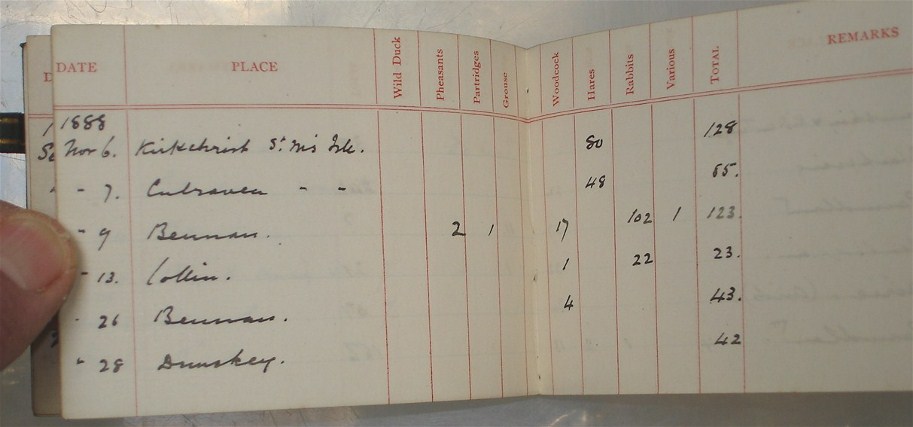 DATE PLACE Wild Duck Pheasants Partridges Grouse Woodcock Hares Rabbits Various TOTAL REMARKS
1888
Nov 6. Kirkchrist St. M's Isle. 80 128
" 7. Culraven " " 48 55.
" 9 Bennan. 2 1 17 102 1 123.
" 13. Collin. 1 22 23.
" 26 Bennan. 4 43.
" 28 Dunskey. 42